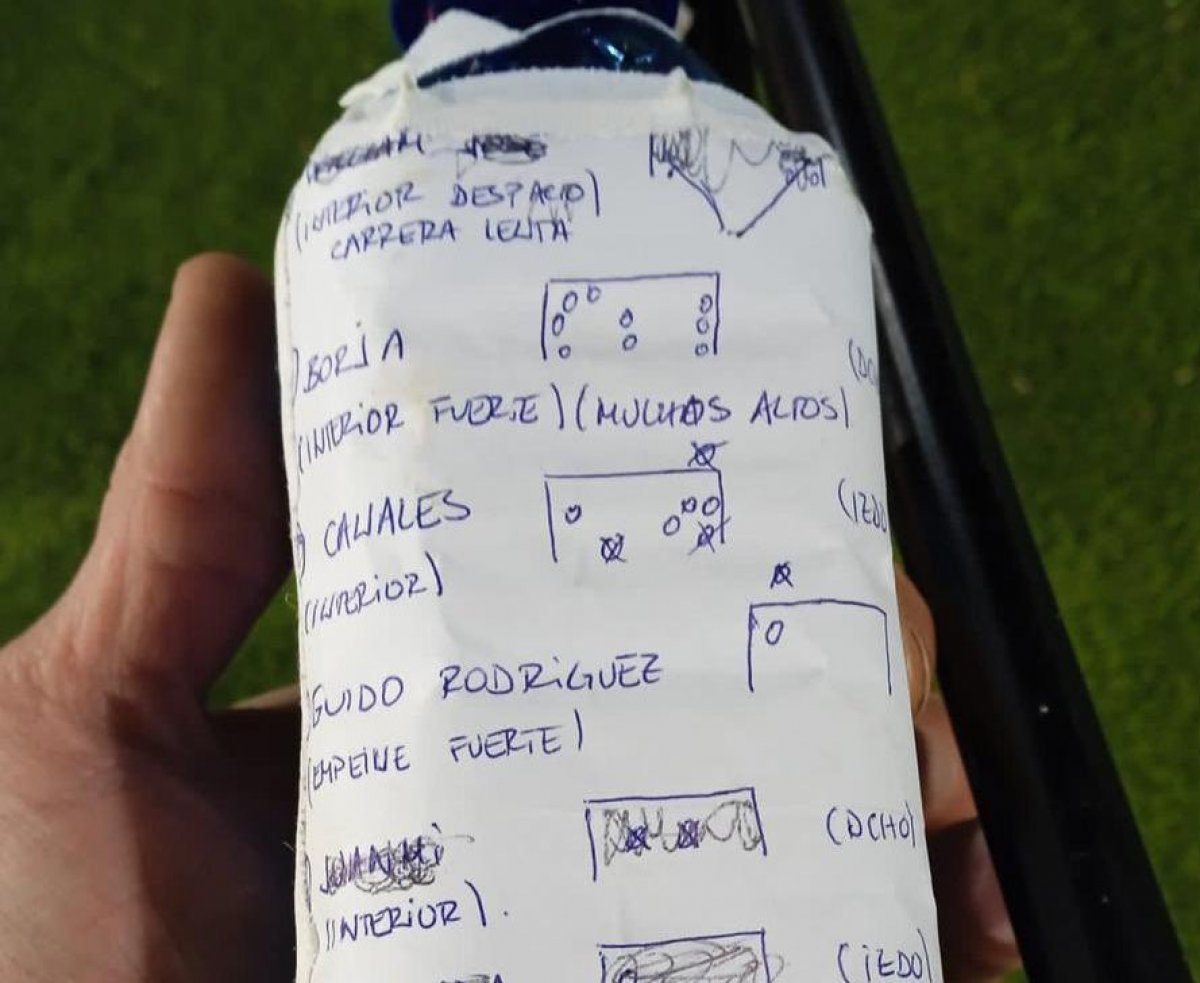 (INTERIOR DESPACIO)
CARRERA LENTA
BORJA
(INTERIOR FUERTE) (MUCHOS ALTOS)
CANALES
(IZDO
(INTERIOR)
GUIDO RODRIGUEZ
(EMPEINE FUERTE)
(DCHO)
(INTERIOR).
(IZDO)